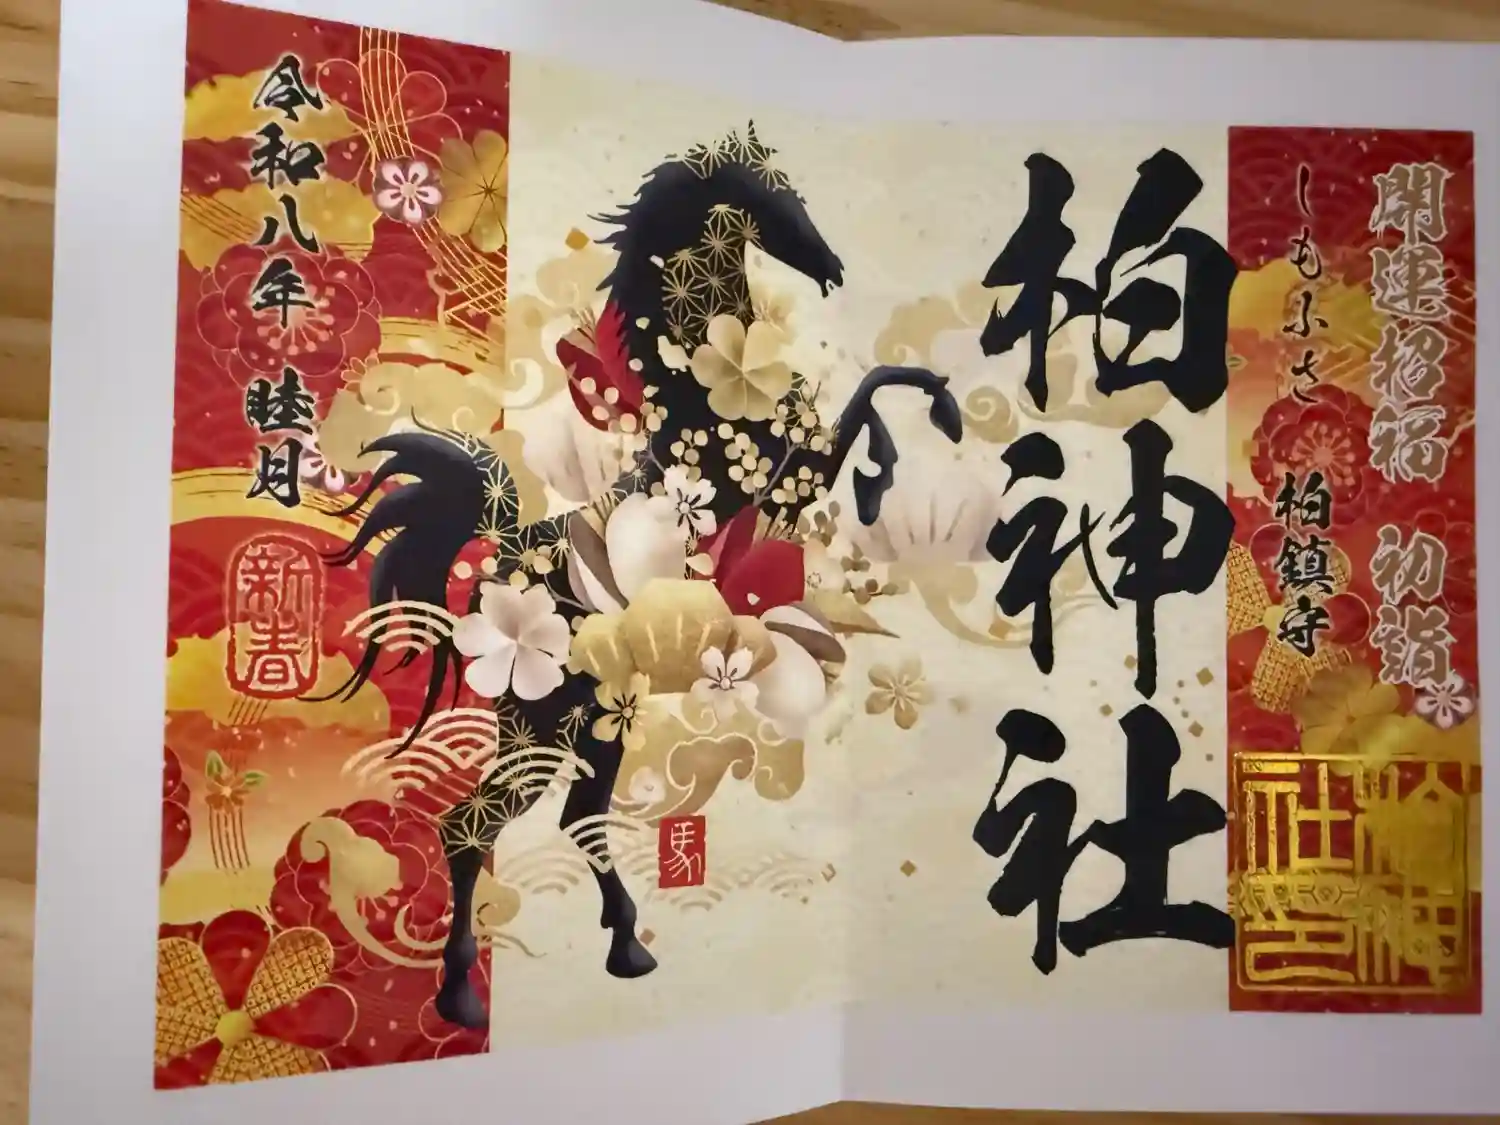 開運招福 初詣
しもふさ 柏鎮守
柏神社
柏神社印
馬
令和八年 睦月
新春